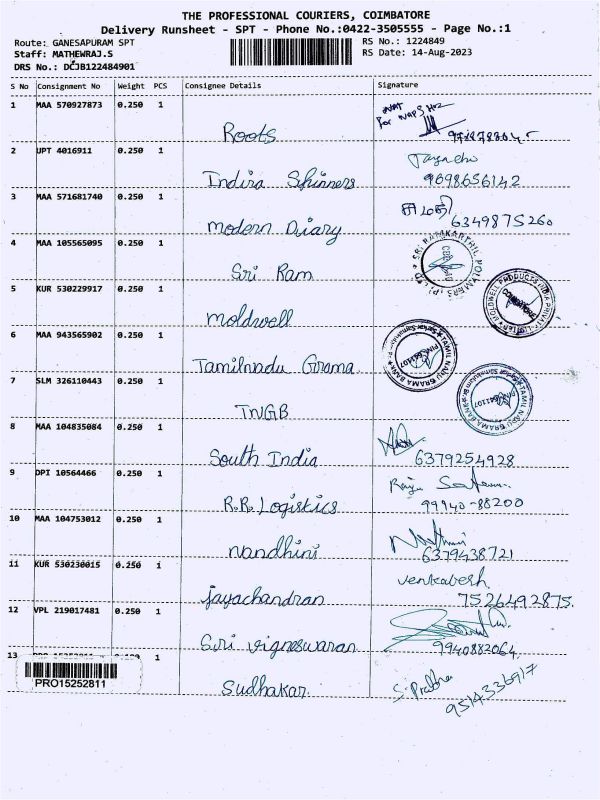 THE PROFESSIONAL COURIERS, COIMBATORE
Delivery Runsheet - SPT - Phone No.:0422-3505555 - Page No.:1
Route: GANESAPURAM SPT
Staff: MATHEWRAJ.S
DRS No.: DCJB122484901
RS No.: 1224849
RS Date: 14-Aug-2023
S No Consignment No Weight PCS Consignee Details Signature
1 MAA 570927873 0.250 1 Roots
2 UPT 4016911 0.250 1 Indira Spinners 9698656142
3 MAA 571681740 0.250 1 Modern Diary சுமதி 6349875260
4 MAA 105565095 0.250 1 Sri Ram
SRI RAMKARTHIK POLYMERS (P) LTD
5 KUR 530229917 0.250 1 Moldwell
MOLDWELL PRODUCTS INDIA PRIVATE LIMITED
6 MAA 943565902 0.250 1 Tamilnadu Grama
TAMIL NADU GRAMA BANK PIN:641107
7 SLM 326110443 0.250 1 TNGB
TAMIL NADU GRAMA BANK PIN:641107
8 MAA 104835084 0.250 1 South India 6379254928
9 DPI 10564466 0.250 1 R.R. Logistics 99940-88200
10 MAA 104753012 0.250 1 Nandhini 6379438721
11 KUR 530230015 0.250 1 Jayachandran Venkabesh. 7526492875.
12 VPL 219017481 0.250 1 Sri Vigneswaran 9940882064
13 1 Sudhakar. S. Prabha 9514336917
PRO15252811